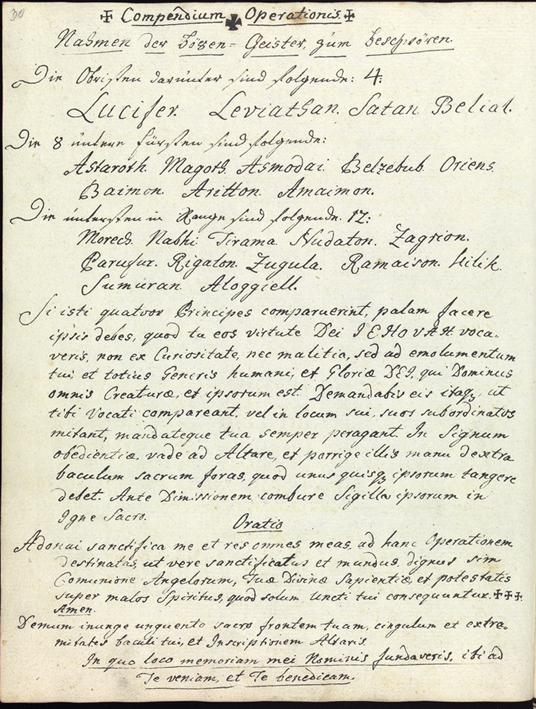 30
✠ Compendium ✠ Operationis. ✠
Nahmen der bösen=Geister, zum beschwören.
Die Obristen darunter sind folgende: 4:
Lucifer. Leviathan. Satan Belial.
Die 8 untere fürsten sind folgende:
Astaroth. Magoth. Asmodai. Belzebub. Oriens.
Paimon. Aritton. Amaimon.
Die untersten in Range sind folgende. 12:
Morech. Nabhi Tirama Nudaton. Zagrion.
Parusur. Rigaton. Zugula. Ramaison. Hilik.
Sumuran. Aloggiell.
Si isti quatuor Principes comparuerint, palam facere
ipsis debes, quod tu eos virtute Dei IEHOVAH. voca-
veris, non ex Curiositate, nec malitia, sed ad emolumentum
tui et totius Generis humani, et Gloriæ DEI, qui Dominus
omnis Creaturæ, et ipsorum est. Demandabis eis itaq3, ut
tibi Vocati compareant, vel in locum sui, suos subordinatos
mitant, mandateque tua semper peragant. In Signum
obedientiæ vade ad Altare, et porrige illis manu dextra
baculum sacrum foras, quod unus quisq3 ipsorum tangere
debet. Ante Dimissionem combure Sigilla ipsorum in
Igne Sacro.
Oratio
Adonai sanctifica me et res omnes meas, ad hanc Operationem
destinatas, ut vere sanctificatus et mundus, dignus sim
Comunione Angelorum, Tuæ Divinæ Sapientiæ, et potestatis
super malos Spiritus, quod solum Uncti tui consequuntur. ✠ ✠ ✠.
Amen.
Demum inunge unguento sacro frontem tuam, cingulum et extre-
mitates baculi tui, et Inscriptionem Altaris.
In quo loco memoriam mei Nominis fundaveris, ibi ad
Te veniam, et Te benedicam.